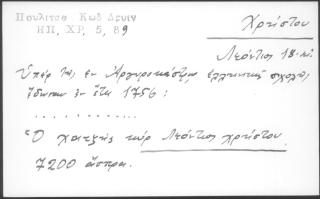 Πουλίτσα Κωδ Δρυιν
ΗΠ, ΧΡ, 5, 89
Χρήστου
Λεόντιος 18.αι.
Ὑπὲρ τῆς ἐν Ἀργυροκάστρῳ ἑλληνικῆς σχολῆς,
ἔδωκαν ἐν ἔτει 1756:
. . . . . . . . . . .
Ὁ χατζῆς κὺρ Λεόντιος χρήστου
7200 ἄσπρα.